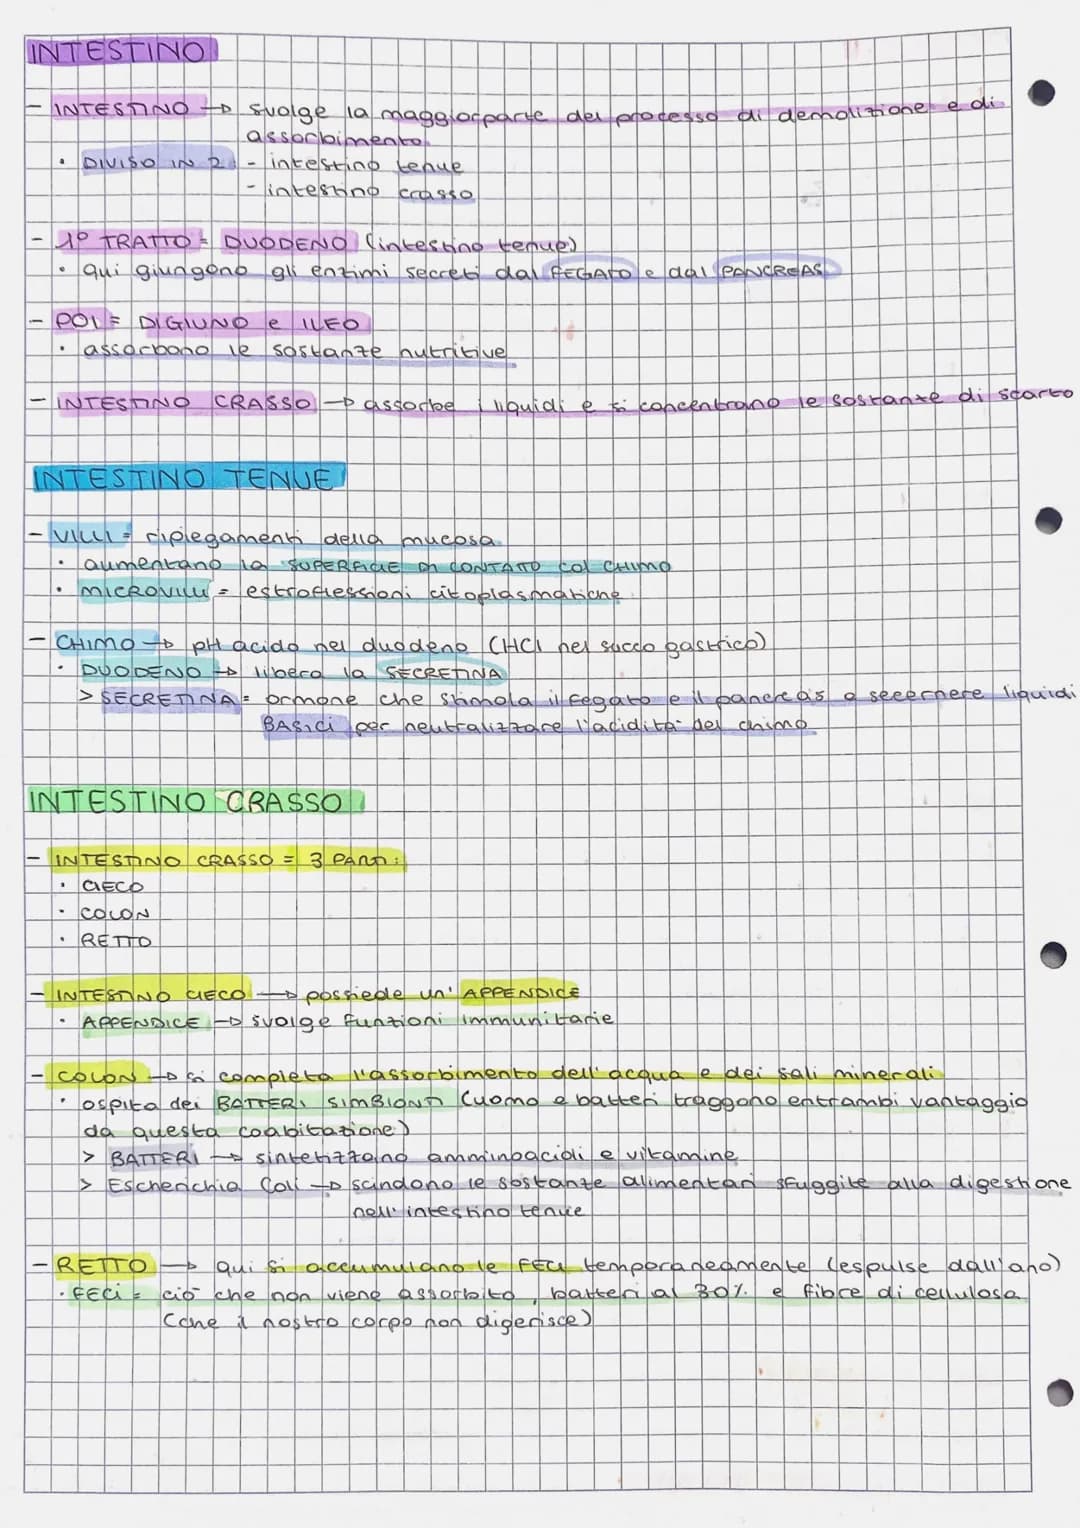 INTESTINO
- INTESTINO → svolge la maggiorparte del processo di demolizione e di
assorbimento
• DIVISO IN 2 - intestino tenue
- intestino crasso
- 1° TRATTO = DUODENO (intestino tenue)
• qui giungono gli enzimi secreti dal FEGATO e dal PANCREAS
- POI = DIGIUNO e ILEO
• assorbono le sostanze nutritive
- INTESTINO CRASSO → assorbe i liquidi e si concentrano le sostanze di scarto
INTESTINO TENUE
- VILLI = ripiegamenti della mucosa
• aumentano la SUPERFICIE DI CONTATTO col CHIMO
• MICROVILLI = estroflessioni citoplasmatiche
- CHIMO → pH acido nel duodeno (HCl nel succo gastrico)
• DUODENO → libera la SECRETINA
> SECRETINA = ormone che stimola il fegato e il pancreas a secernere liquidi
BASICI per neutralizzare l'acidità del chimo
INTESTINO CRASSO
- INTESTINO CRASSO = 3 PARTI:
• CIECO
• COLON
• RETTO
- INTESTINO CIECO → possiede un' APPENDICE
• APPENDICE → svolge funzioni immunitarie
- COLON → si completa l'assorbimento dell'acqua e dei sali minerali
• ospita dei BATTERI SIMBIONTI (uomo e batteri traggono entrambi vantaggio
da questa coabitazione)
> BATTERI → sintetizzano amminoacidi e vitamine
> Escherichia Coli → scindono le sostanze alimentari sfuggite alla digestione
nell'intestino tenue
- RETTO → qui si accumulano le FECI temporaneamente (espulse dall'ano)
• FECI = ciò che non viene assorbito, batteri al 30% e fibre di cellulosa
(che il nostro corpo non digerisce)